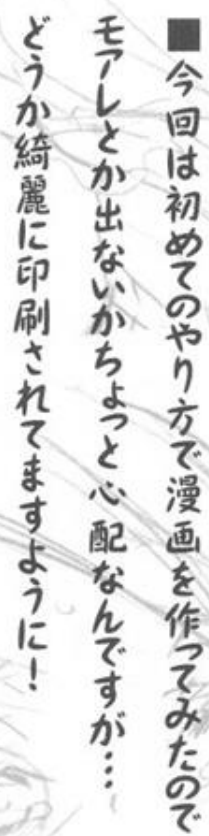 ■今回は初めてのやり方で漫画を作ってみたので
モアレとか出ないかちょっと心配なんですが…
どうか綺麗に印刷されてますように！